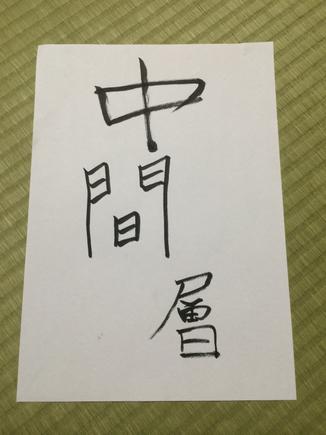 中間層